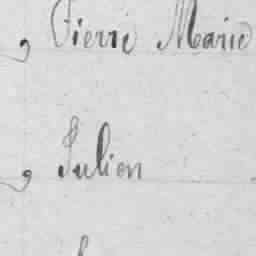 , Pierre Marie
, Julien